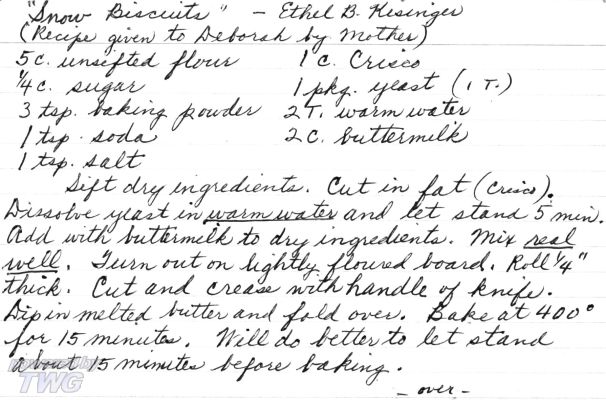 "Snow Biscuits" – Ethel B. Kisinger
(Recipe given to Deborah by Mother)
5 c. unsifted flour 1 c. Crisco
1/4 c. sugar 1 pkg. yeast (1 T.)
3 tsp. baking powder 2 T. warm water
1 tsp. soda 2 c. buttermilk
1 tsp. salt
Sift dry ingredients. Cut in fat (Crisco).
Dissolve yeast in warm water and let stand 5 min.
Add with buttermilk to dry ingredients. Mix real
well. Turn out on lightly floured board. Roll 1/4"
thick. Cut and crease with handle of knife.
Dip in melted butter and fold over. Bake at 400°
for 15 minutes. Will do better to let stand
about 15 minutes before baking.
powered by
TWG
– over –